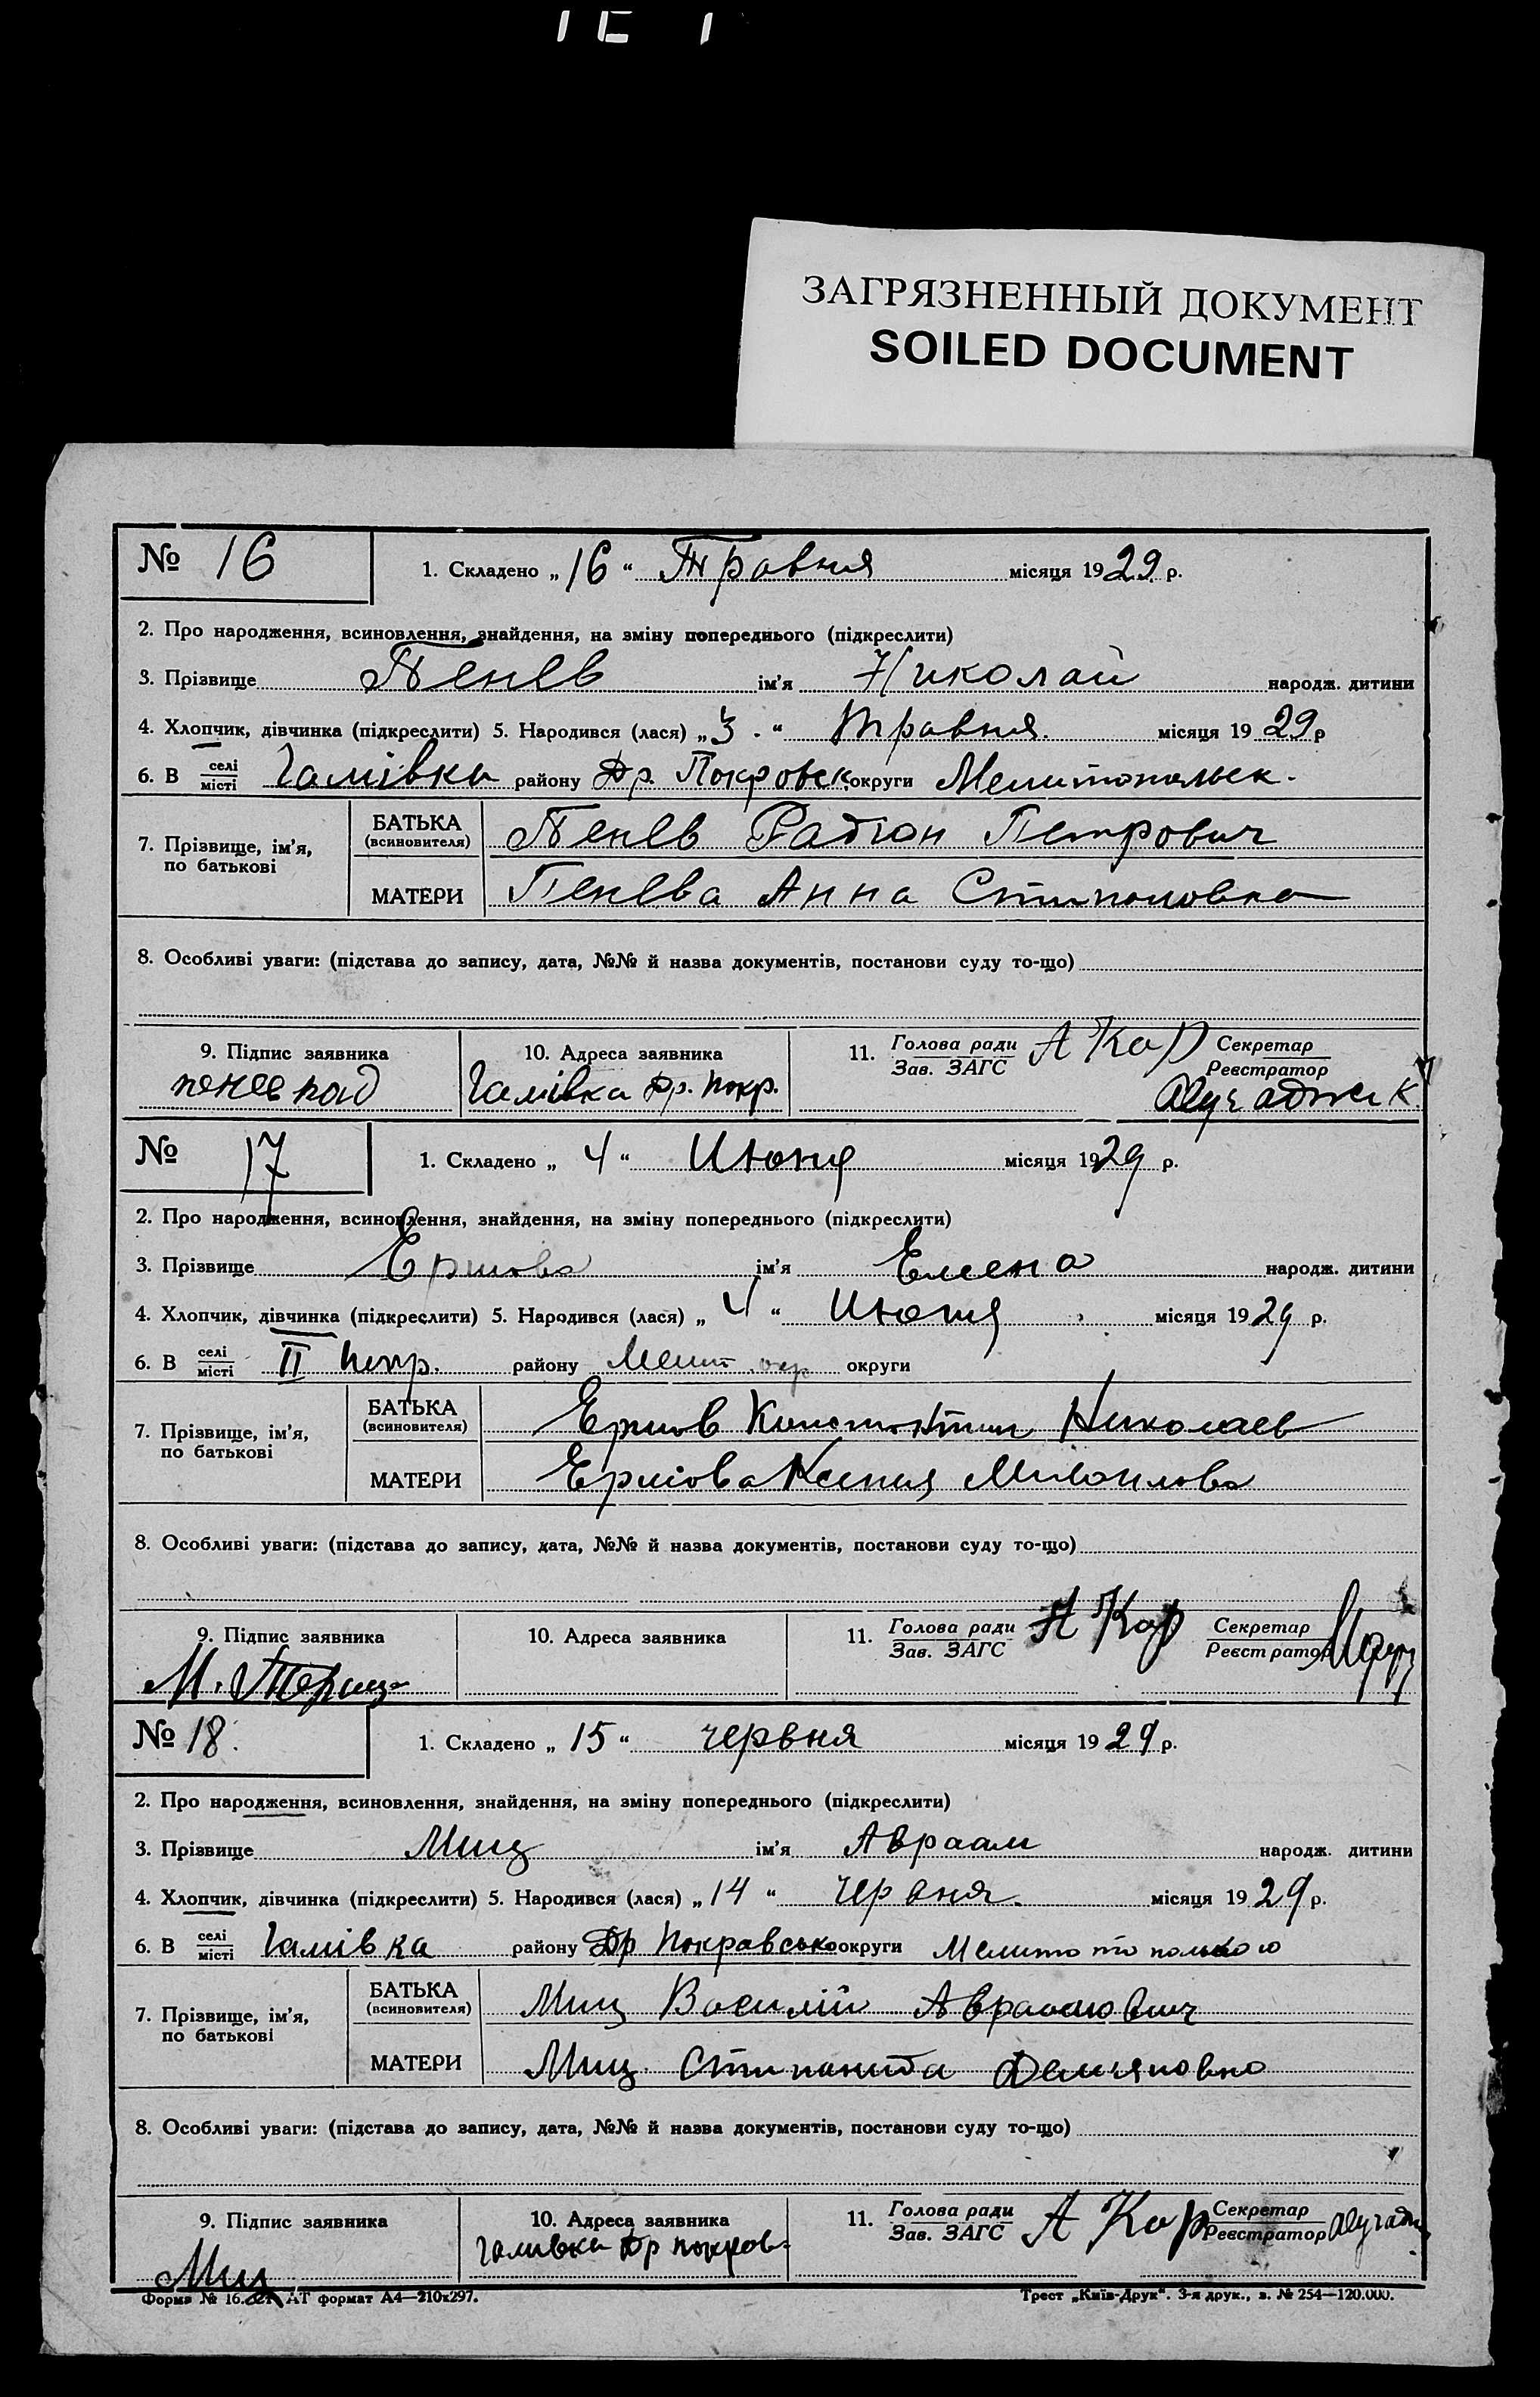 ЗАГРЯЗНЕННЫЙ ДОКУМЕНТ
SOILED DOCUMENT
№ 16
1. Складено „16“ Травня місяця 1929 р.
2. Про народження, всиновлення, знайдення, на зміну попереднього (підкреслити)
3. Прізвище Пенев ім'я Николай народж. дитини
4. Хлопчик, дівчинка (підкреслити) 5. Народився (лася) „3“ травня місяця 1929 р
6. В селі місті Гамівка району Др. Покровск округи Мелитопольск.
7. Прізвище, ім'я, по батькові
БАТЬКА (всиновителя) Пенев Радіон Петрович
МАТЕРИ Пенева Анна
8. Особливі уваги: (підстава до запису, дата, №№ й назва документів, постанови суду то-що)
9. Підпис заявника
10. Адреса заявника
11. Голова ради Зав. ЗАГС А Кор Секретар Реєстратор
пенев рад
Гамівка Др. Покр.
№ 17
1. Складено „4“ Июня місяця 1929 р.
2. Про народження, всиновлення, знайдення, на зміну попереднього (підкреслити)
3. Прізвище Ершова ім'я Елена народж. дитини
4. Хлопчик, дівчинка (підкреслити) 5. Народився (лася) „4“ Июня місяця 1929 р.
6. В селі місті II Петр. району Мелит. окр округи
7. Прізвище, ім'я, по батькові
БАТЬКА (всиновителя) Ершов Константин Николаев
МАТЕРИ Ершова Ксения Михайлова
8. Особливі уваги: (підстава до запису, дата, №№ й назва документів, постанови суду то-що)
9. Підпис заявника
10. Адреса заявника
11. Голова ради Зав. ЗАГС А Кор Секретар Реєстратор
№ 18.
1. Складено „15“ червня місяця 1929 р.
2. Про народження, всиновлення, знайдення, на зміну попереднього (підкреслити)
3. Прізвище Миц ім'я Авраам народж. дитини
4. Хлопчик, дівчинка (підкреслити) 5. Народився (лася) „14“ Червня місяця 1929 р.
6. В селі місті Гамівка району Др Покравсько округи
7. Прізвище, ім'я, по батькові
БАТЬКА (всиновителя) Миц Василій Авраамович
МАТЕРИ Миц Степанида Демяновна
8. Особливі уваги: (підстава до запису, дата, №№ й назва документів, постанови суду то-що)
9. Підпис заявника
10. Адреса заявника
11. Голова ради Зав. ЗАГС А Кор Секретар Реєстратор
Гамивка Др покров.
Миц
Форма № 16. АТ формат А4—210х297.
Трест „Київ-Друк“. 3-я друк., з. № 254—120.000.